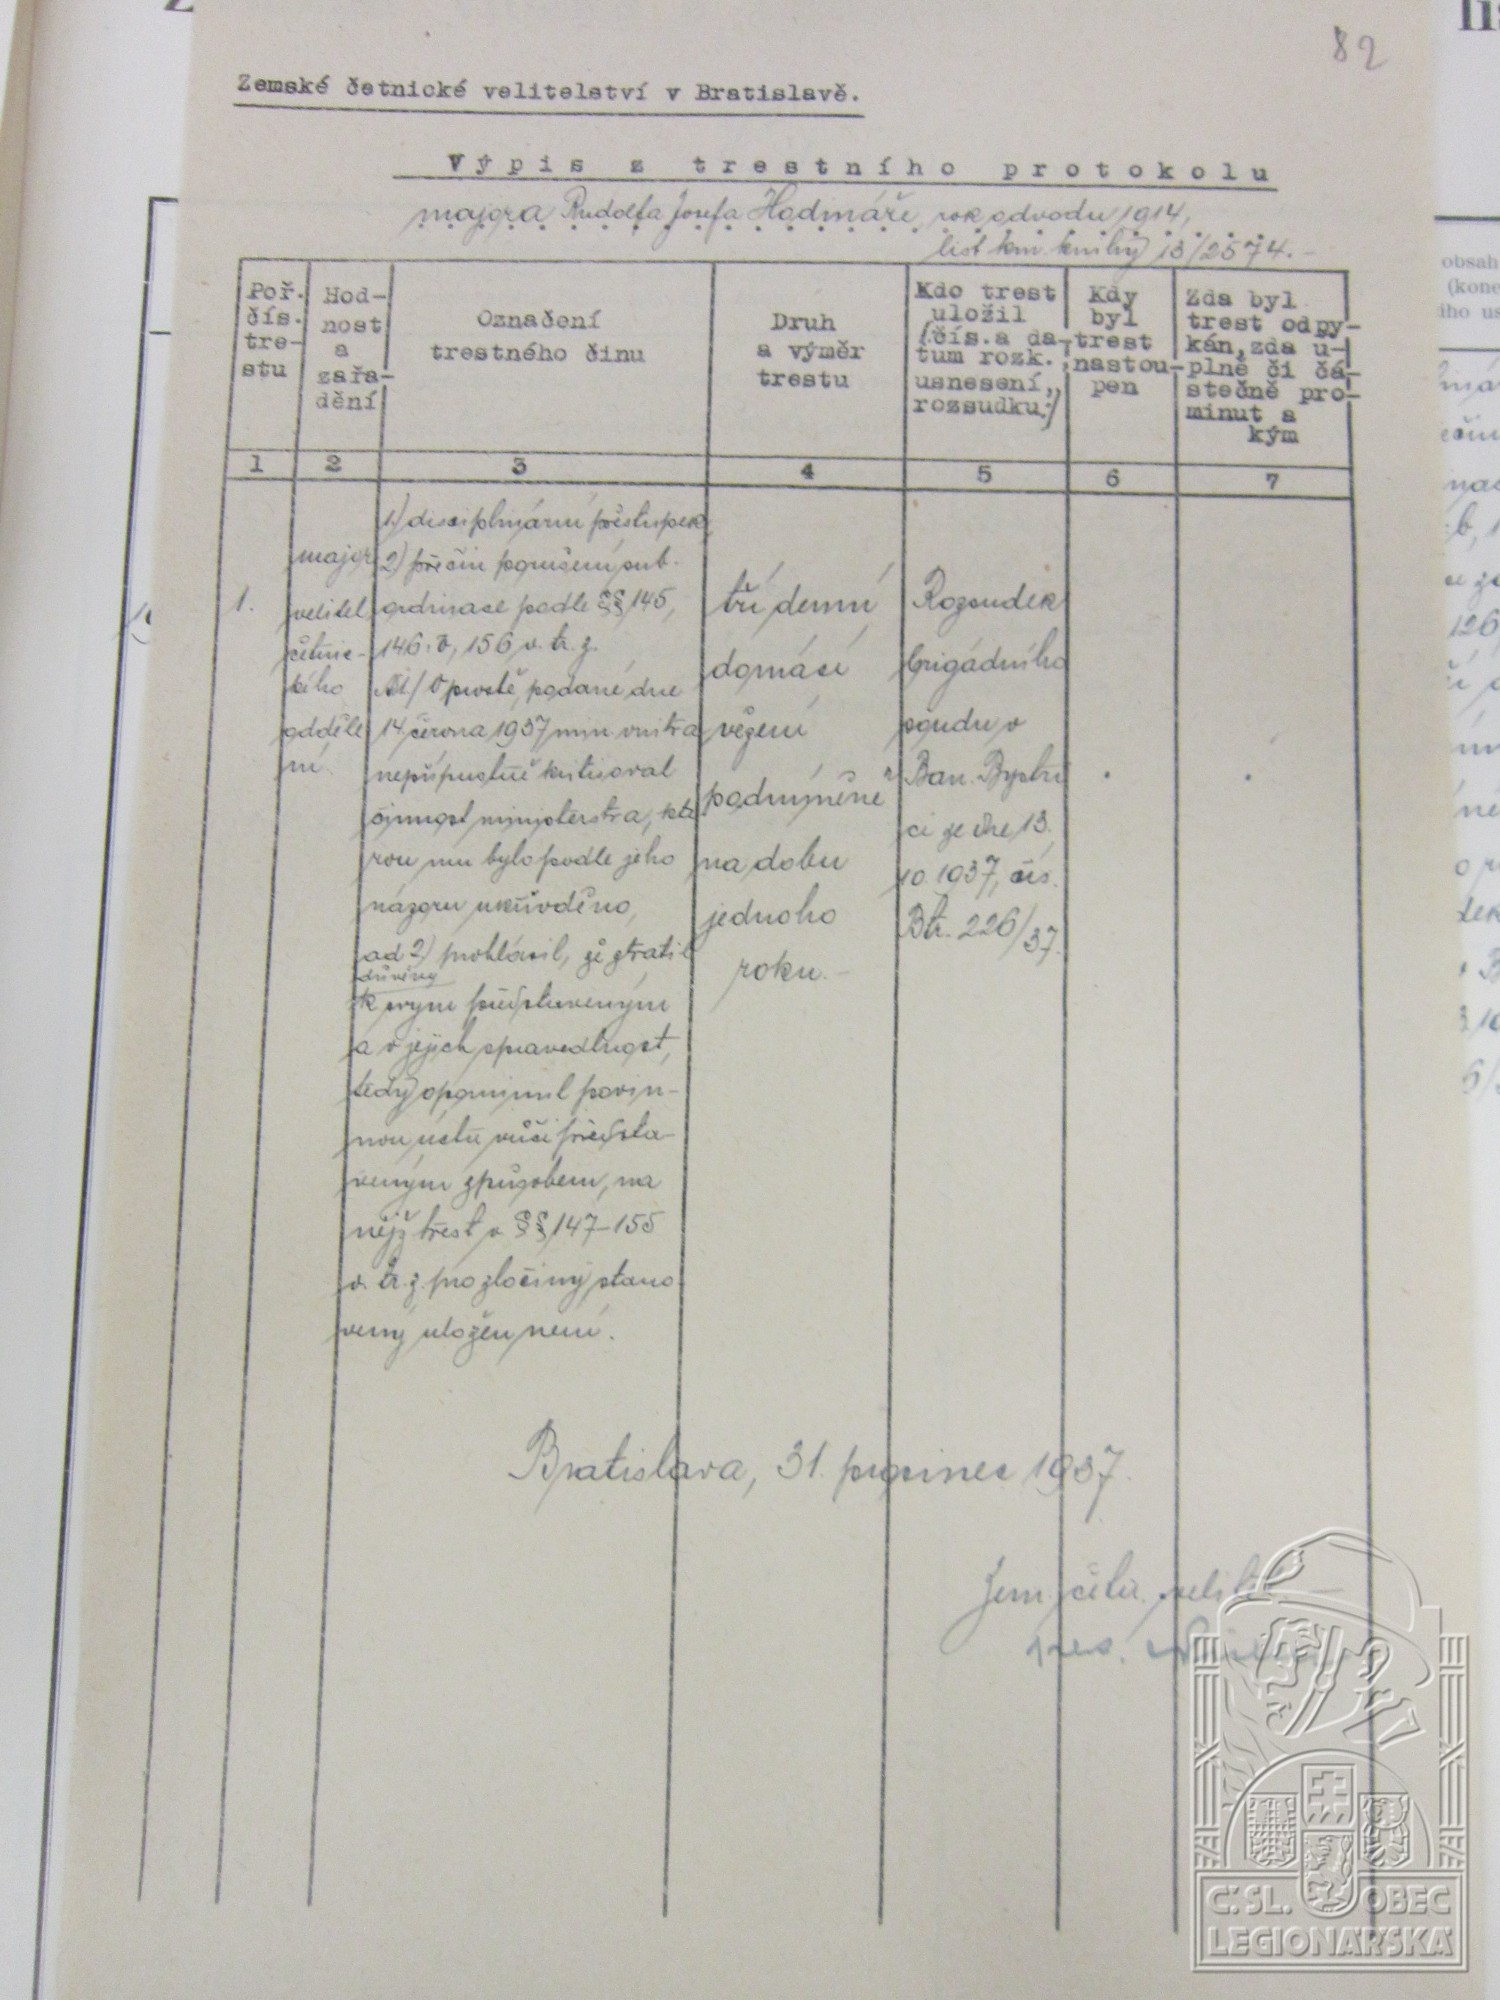 82
Zemské četnické velitelství v Bratislavě.
Výpis z trestního protokolu
majora Rudolfa Josefa Hodináře, rok odvodu 1914,
list km. knihy 13/2574.-
Poř. čís. tre- stu
Hod- nost a zařa- dění
Označení trestného činu
Druh a výměr trestu
Kdo trest uložil (čís. a da- tum rozk. usnesení, rozsudku.)
Kdy byl trest nastou- pen
Zda byl trest odpy- kán, zda u- plně či čá- stečně pro- minut a kým
1 2 3 4 5 6 7
1.
major
velitel
četnic-
kého
odděle
ní.
1.) disciplinární přestupek,
2) přečin porušení sub-
ordinace podle §§ 145,
146. b, 156 v. tr. z.
Ad 1/ V prosbě, podané dne
14. června 1937 min. vnitra
nepřípustně kritisoval
činnost ministerstva, kte
rou mu bylo podle jeho
názoru ukřivděno,
ad 2) prohlásil, že ztratil
důvěru
k svým představeným
a v jejich spravedlnost,
tedy opominul povin-
nou úctu vůči předsta-
veným způsobem, na
nějž trest v §§ 147-155
v. tr. z. pro zločiny stano
vený uložen není.
tři denní
domácí
vězení
podmíněně
na dobu
jednoho
roku.-
Rozsudek
brigádního
soudu v
Ban. Bystri
ci ze dne 13.
10. 1937, čís.
Btr. 226/37.
Bratislava, 31. prosinec 1937.
Zem. četn. velitel
Č.SL. OBEC
LEGIONÁŘSKÁ
obsah
(kone